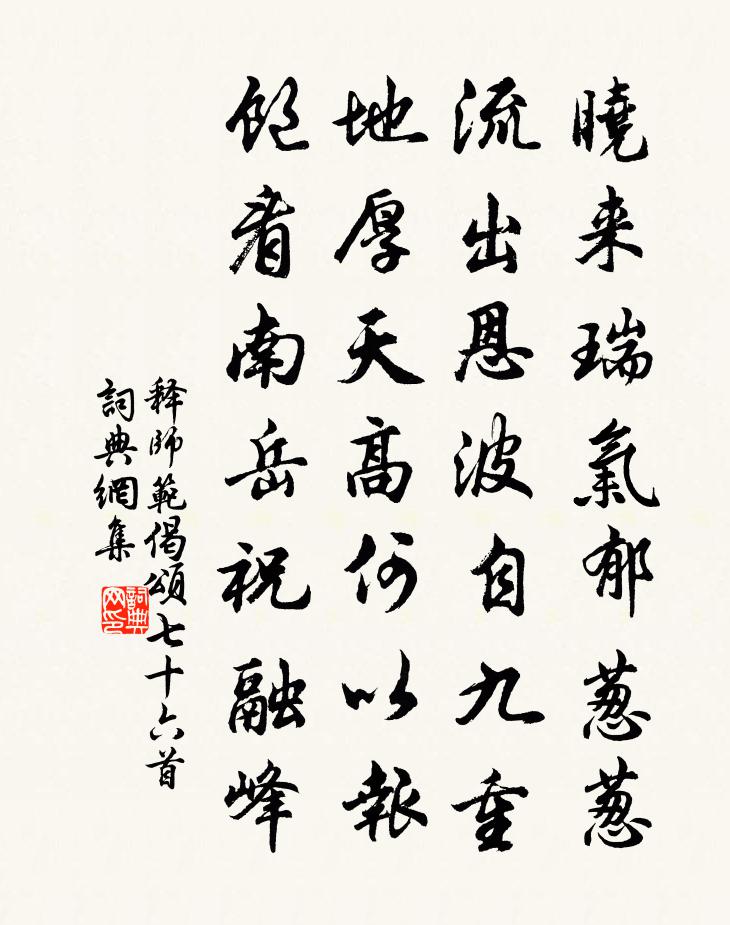 曉来瑞氣郁葱葱
流出恩波自九重
地厚天高何以報
饱看南岳祝融峰
释師範偈頌七十六首
詞典網集
詞典网印